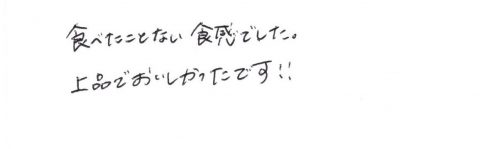 食べたことない食感でした。
上品でおいしかったです!!